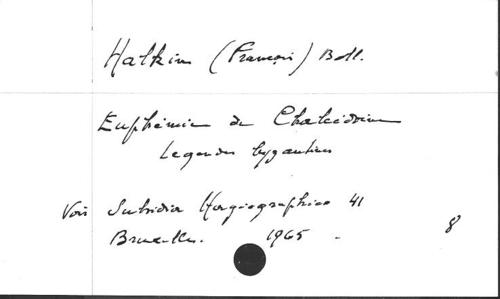 Halkin (François) Boll.
Euphémie de Chalcédoine
Legendes byzantines
Voir Subsidia Hagiographica 41
Bruxelles. 1965.
8